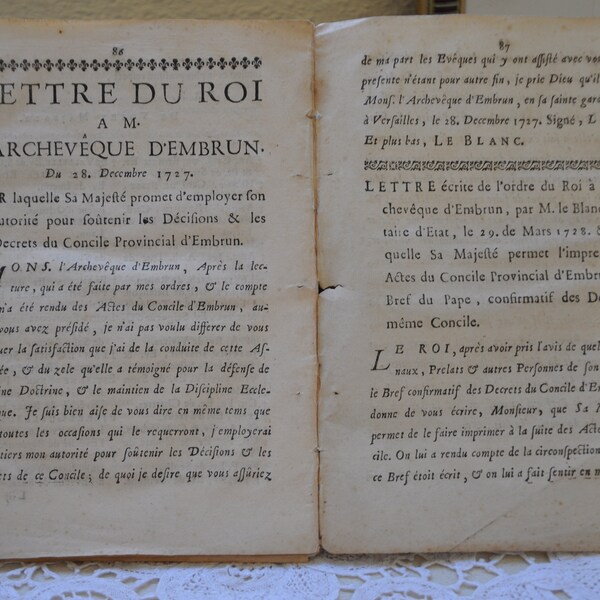 86
LETTRE DU ROI
A M.
ARCHEVÊQUE D'EMBRUN.
Du 28. Decembre 1727.
R laquelle Sa Majesté promet d'employer son
utorité pour soûtenir les Décisions & les
Decrets du Concile Provincial d'Embrun.
MONS. l'Archevêque d'Embrun, Après la lec-
ture, qui a été faite par mes ordres, & le compte
m'a été rendu des Actes du Concile d'Embrun, au-
vous avez présidé, je n'ai pas voulu differer de vous
quer la satisfaction que j'ai de la conduite de cette As-
ée, & du zele qu'elle a témoigné pour la défense de
ine Doctrine, & le maintien de la Discipline Eccle-
que. Je suis bien aise de vous dire en même tems que
toutes les occasions qui le requerront, j'employerai
tiers mon autorité pour soûtenir les Décisions & les
ets de ce Concile; de quoi je desire que vous assûriez
87
de ma part les Evêques qui y ont assisté avec vou
presente n'étant pour autre fin, je prie Dieu qu'il
Mons. l'Archevêque d'Embrun, en sa sainte gard
à Versailles, le 28. Decembre 1727. Signé, L
Et plus bas, LE BLANC.
LETTRE écrite de l'ordre du Roi à
chevêque d'Embrun, par M. le Blanc
taire d'Etat, le 29. de Mars 1728. &
quelle Sa Majesté permet l'impre
Actes du Concile Provincial d'Embr
Bref du Pape, confirmatif des De
même Concile.
LE ROI, après avoir pris l'avis de quel
naux, Prelats & autres Personnes de son
le Bref confirmatif des Decrets du Concile d'E
donne de vous écrire, Monsieur, que Sa M
permet de le faire imprimer à la suite des Acte
cile. On lui a rendu compte de la circonspection
ce Bref étoit écrit, & on lui a fait sentir en m